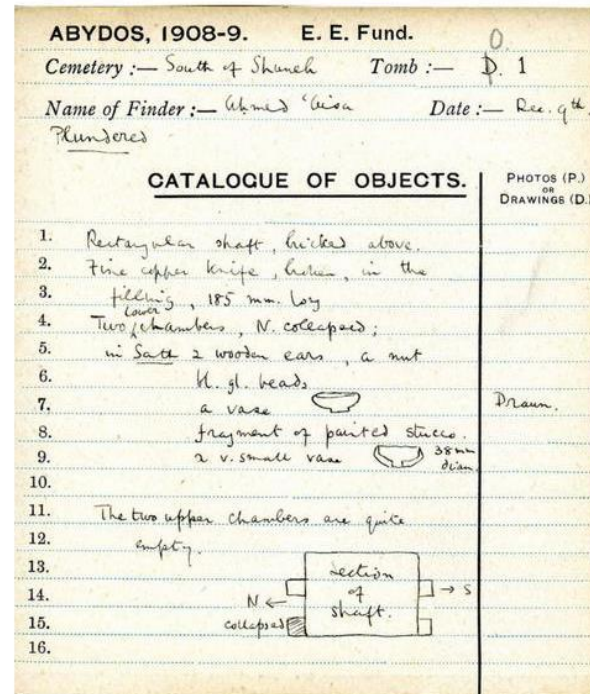 ABYDOS, 1908-9. E. E. Fund.
O.
Cemetery :— South of Shuneh Tomb :— D. 1
Name of Finder :— Ahmed 'Aisa Date :— Dec. 9th.
Plundered
CATALOGUE OF OBJECTS.
PHOTOS (P.)
OR
DRAWINGS (D.)
1. Rectangular shaft, bricked above.
2. Fine copper knife, broken, in the
3. filling, 185 mm. long
lower
4. Two chambers, N. collapsed;
5. in Sth 2 wooden ears, a nut
6. bl. gl. beads
7. a vase Drawn.
8. fragment of painted stucco.
9. 2 v. small vase 38 mm
diam.
10.
11. The two upper chambers are quite
12. empty.
13. section
14. N ← of → S
15. collapsed shaft.
16.